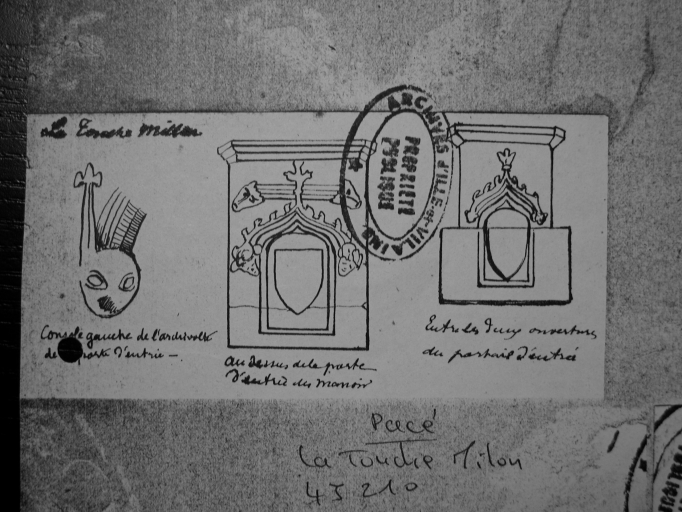 La Touche Millon
ARCHIVES D'ILLE-et-VILAINE
PROPRIÉTÉ
PUBLIQUE
Console gauche de l'archivolte
de porte d'entrée –
au dessus de la porte
d'entrée du manoir
Entre les deux ouvertures
du portail d'entrée
Pacé
La Touche Milon
45 210